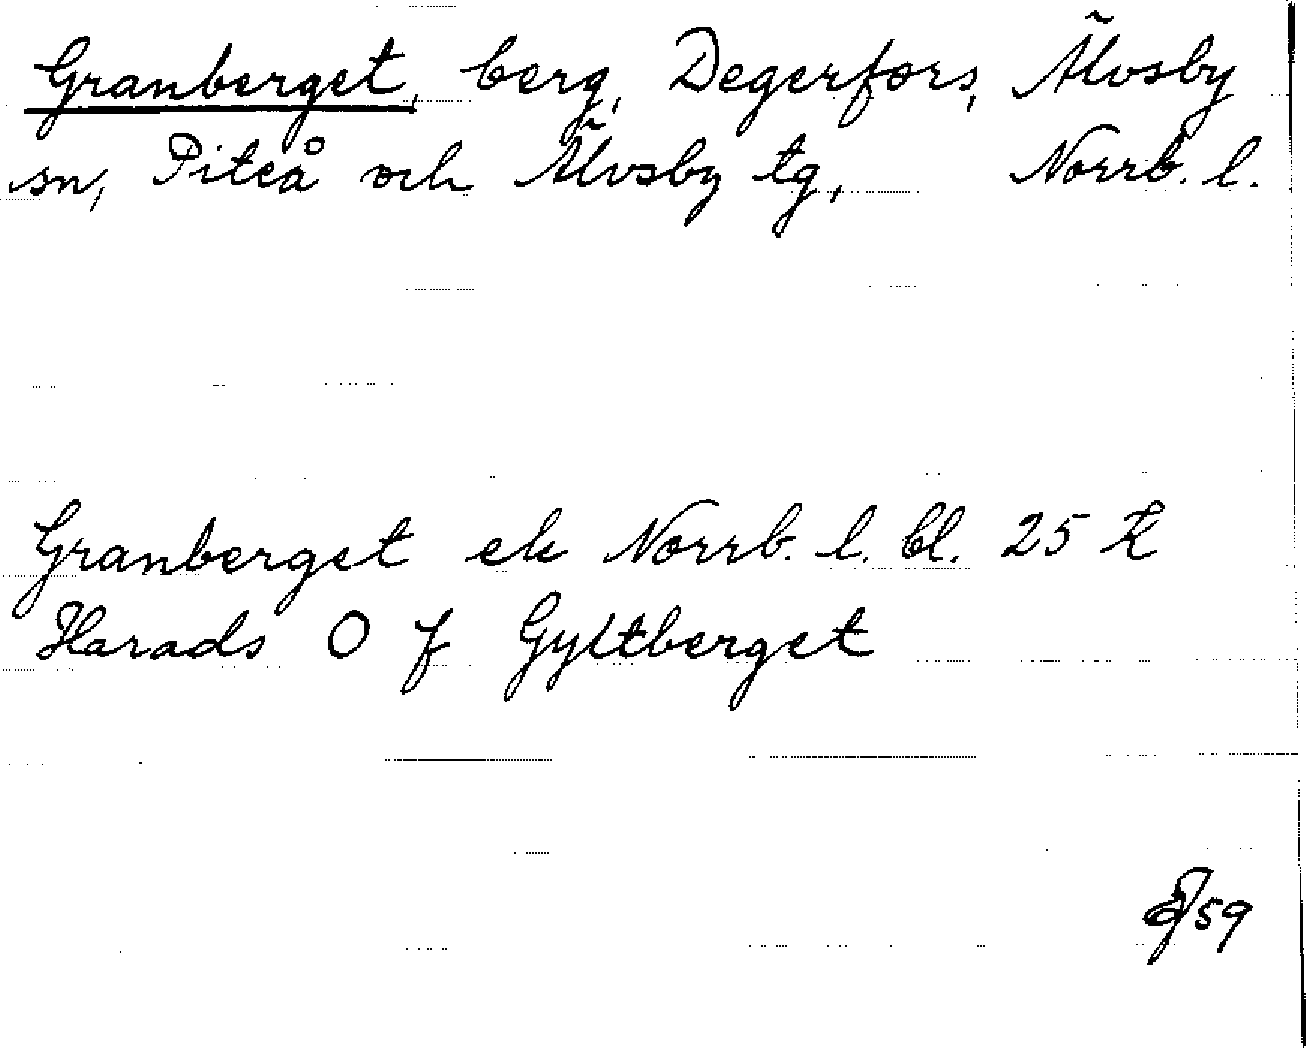 Granberget, berg, Degerfors, Älvsby
sn, Piteå och Älvsby tg, Norrb. l.
Granberget ek Norrb. l. bl. 25
Harads O f Gyltberget
59